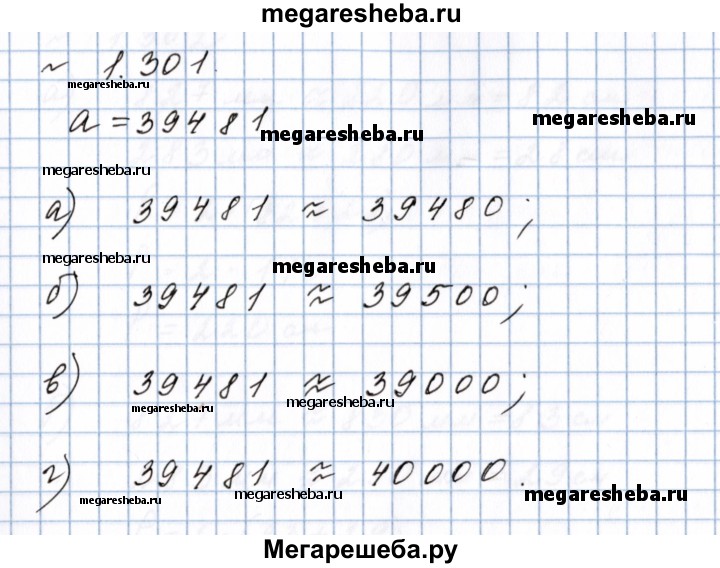 megaresheba.ru
~ 1.301.
megaresheba.ru
a = 39481
megaresheba.ru
megaresheba.ru
megaresheba.ru
а) 39481 ≈ 39480;
megaresheba.ru
megaresheba.ru
б) 39481 ≈ 39500;
в) 39481 ≈ 39000;
megaresheba.ru
megaresheba.ru
г) 39481 ≈ 40000.
megaresheba.ru
megaresheba.ru
megaresheba.ru
Мегарешеба.ру